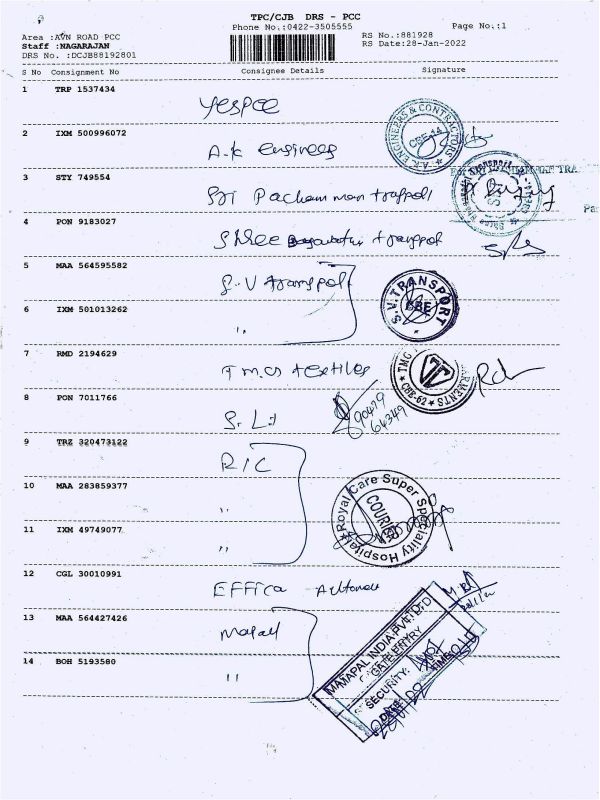 TPC/CJB DRS - PCC
Phone No.:0422-3505555
Page No.:1
Area :AVN ROAD PCC
RS No.:881928
Staff :NAGARAJAN
RS Date:28-Jan-2022
DRS No. :DCJB88192801
S No Consignment No Consignee Details Signature
1 TRP 1537434
yespee
2 IXM 500996072
A.K Engineers
A.K. ENGINEERS & CONTRACTORS
CBE-14
3 STY 749554
Sri
4 PON 9183027
Shree
5 MAA 564595582
S.V transport
S.V. TRANSPORT
CBE
6 IXM 501013262
"
7 RMD 2194629
TMG textiles
TMG
GARMENTS
CBE-62
8 PON 7011766
90429
64349
9 TRZ 320473122
RIC
10 MAA 283859377
"
Royal Care Super Speciality Hospital
COURIER
11 IXM 49749077
"
12 CGL 30010991
Effica
13 MAA 564427426
MAMAPAL INDIA PVT LTD
GATE ENTRY
SECURITY:
TIME
DATE
14 BOH 5193580
"